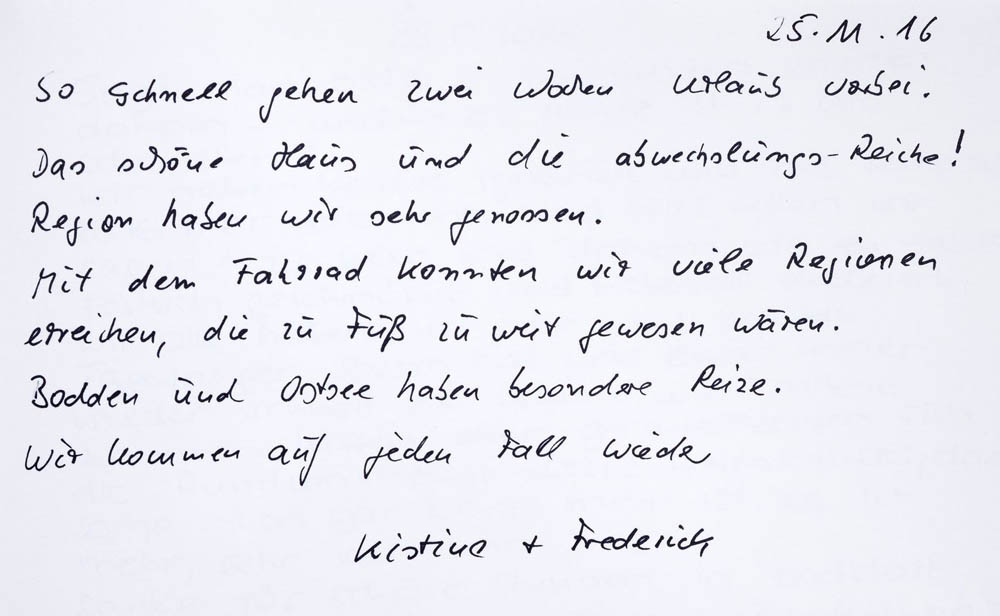 25.11.16
So schnell gehen zwei Wochen Urlaub vorbei.
Das schöne Haus und die abwechslungs-Reiche!
Region haben wir sehr genossen.
Mit dem Fahrrad konnten wir viele Regionen
erreichen, die zu Fuß zu weit gewesen wären.
Bodden und Ostsee haben besondere Reize.
Wir kommen auf jeden Fall wieder
Kistina + Frederich